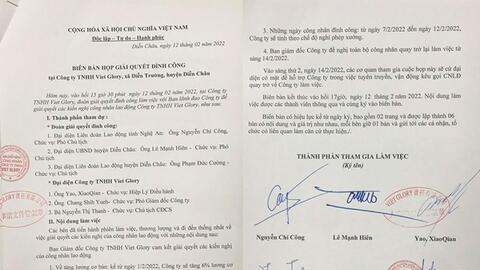 CỘNG HÒA XÃ HỘI CHỦ NGHĨA VIỆT NAM
Độc lập - Tự do - Hạnh phúc
Diễn Châu, ngày 12 tháng 02 năm 2022
BIÊN BẢN HỌP GIẢI QUYẾT ĐÌNH CÔNG
tại Công ty TNHH Viet Glory, xã Diễn Trường, huyện Diễn Châu
Hôm nay, vào hồi 15 giờ 30 phút ngày 12 tháng 02 năm 2022, tại Công ty
TNHH Viet Glory, đoàn giải quyết đình công làm việc với Ban lãnh đạo Công ty để
giải quyết các kiến nghị công nhân lao động Công ty TNHH Viet Glory, như sau:
I. Thành phần tham gia:
* Đoàn giải quyết đình công:
- Đại diện Liên đoàn Lao động tỉnh Nghệ An: Ông Nguyễn Chí Công,
Chức vụ: Phó Chủ tịch
- Đại diện UBND huyện Diễn Châu: Ông Lê Mạnh Hiên - Chức vụ: Phó Chủ tịch
- Đại diện Liên đoàn Lao động huyện Diễn Châu: Ông Phạm Đức Cường -
Chức vụ: Chủ tịch
* Đại diện Công ty TNHH Viet Glory
1. Ông Yao, XiaoQian - Chức vụ: Hiệp Lý Điều hành
2. Ông Chang Shih Yueh- Chức vụ: Phó Giám đốc Công ty
3. Bà Nguyễn Thị Thanh - Chức vụ: Chủ tịch CĐCS
II. Nội dung làm việc
Các bên đã tiến hành phiên làm việc, thương lượng và đi đến thống nhất về
việc giải quyết các kiến nghị của công nhân lao động với những nội dung sau:
Ban Giám đốc Công ty TNHH Viet Glory cam kết giải quyết các kiến nghị
của công nhân lao động.
1. Về tăng lương cơ bản: kể từ ngày 1/2/2022, Công ty sẽ tăng 6% lương cơ
3. Những ngày công nhân đình công: từ ngày 7/2/2022 đến ngày 12/2/2022,
Công ty sẽ tính theo chế độ nghỉ phép xướng.
4. Ban giám đốc Công ty đề nghị toàn bộ công nhân quay trở lại làm việc từ
sáng 14/2/2022.
Vào sáng thứ 2, ngày 14/2/2022, các cơ quan tham gia cuộc họp này sẽ cử đại
diện có mặt để hỗ trợ Công ty trong việc tuyên truyền, vận động kêu gọi CNLĐ
quay trở về Công ty làm việc.
Biên bản kết thúc vào hồi 17giờ, ngày 12 tháng 2 năm 2022. Nội dung làm
việc được các thành viên thông qua và cùng ký vào biên bản.
Biên bản có hiệu lực kể từ ngày ký, bao gồm 02 trang và được lập thành 06
bản có nội dung và giá trị như nhau, mỗi bên giữ 01 bản và gửi tới các cá nhân, tổ
chức có liên quan làm căn cứ thực hiện./.
THÀNH PHẦN THAM GIA LÀM VIỆC
(Ký tên)
Nguyễn Chí Công Lê Mạnh Hiên Yao, XiaoQian